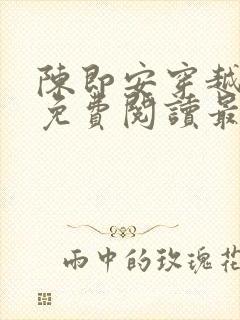 陳即安穿越
免費閱讀最
雨中的玫瑰花